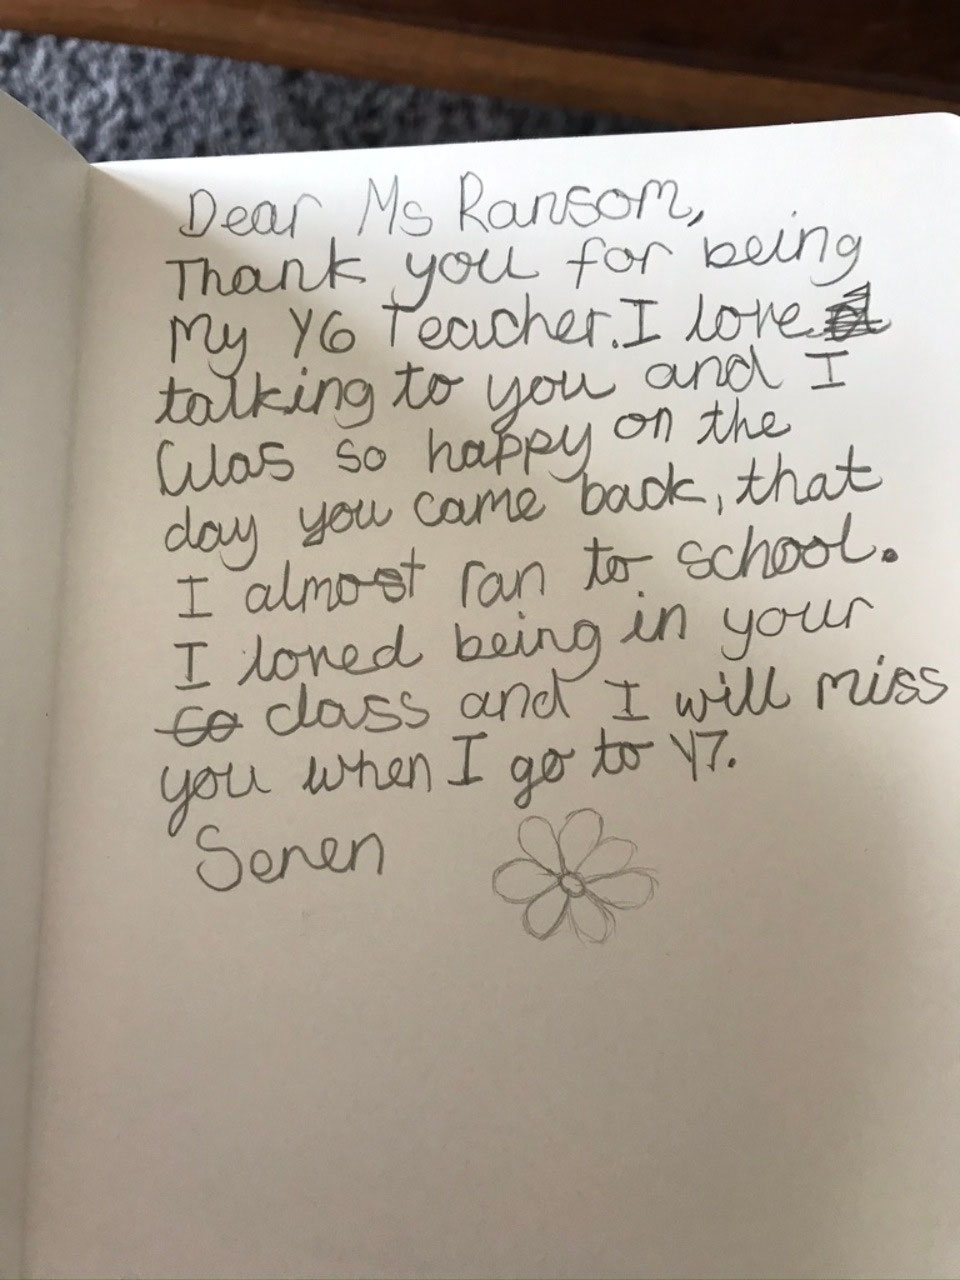 Dear Ms Ransom,
Thank you for being
My Y6 Teacher. I love
talking to you and I
Was so happy on the
day you came back, that
I almost ran to school.
I loved being in your
co class and I will miss
you when I go to Y7.
Seren